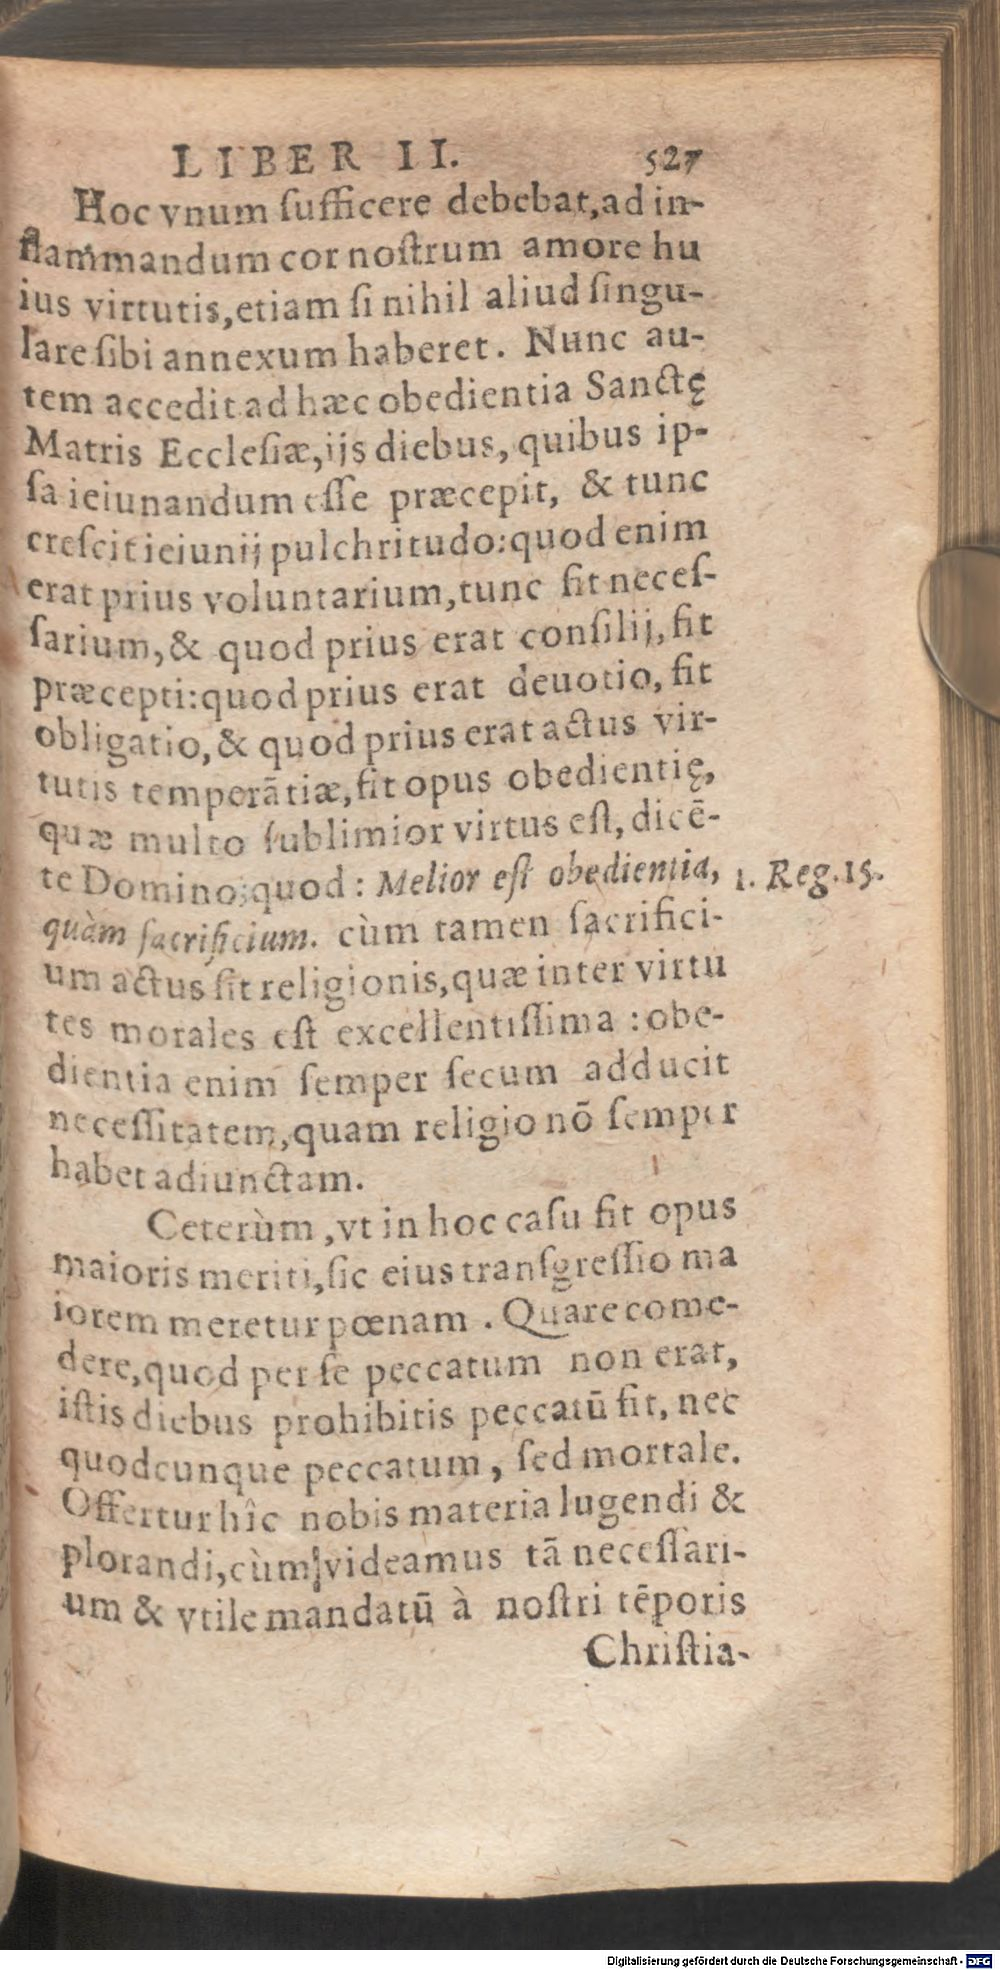 LIBER II. 527
Hoc vnum ſufficere debebat, ad in-
flammandum cor noſtrum amore hu
ius virtutis, etiam ſi nihil aliud ſingu-
lare ſibi annexum haberet. Nunc au-
tem accedit ad hæc obedientia Sanctę
Matris Eccleſiæ, ijs diebus, quibus ip-
ſa ieiunandum eſſe præcepit, & tunc
creſcit ieiunij pulchritudo: quod enim
erat prius voluntarium, tunc fit neceſ-
ſarium, & quod prius erat conſilij, fit
præcepti: quod prius erat deuotio, fit
obligatio, & quod prius erat actus vir-
tutis temperãtiæ, fit opus obedientię,
quæ multo ſublimior virtus eſt, dicẽ-
te Domino; quod: Melior eſt obedientia,
1. Reg. 15.
quàm ſacrificium. cùm tamen ſacrifici-
um actus ſit religionis, quæ inter virtu
tes morales eſt excellentiſſima : obe-
dientia enim ſemper ſecum adducit
neceſſitatem, quam religio nõ ſemper
habet adiunctam.
Ceterùm, vt in hoc caſu fit opus
maioris meriti, ſic eius tranſgreſſio ma
iorem meretur pœnam. Quare come-
dere, quod per ſe peccatum non erat,
iſtis diebus prohibitis peccatũ fit, nec
quodcunque peccatum, ſed mortale.
Offertur hîc nobis materia lugendi &
plorandi, cùm videamus tã neceſſari-
um & vtile mandatũ à noſtri tẽporis
Chriſtia-
Digitalisierung gefördert durch die Deutsche Forschungsgemeinschaft - DFG